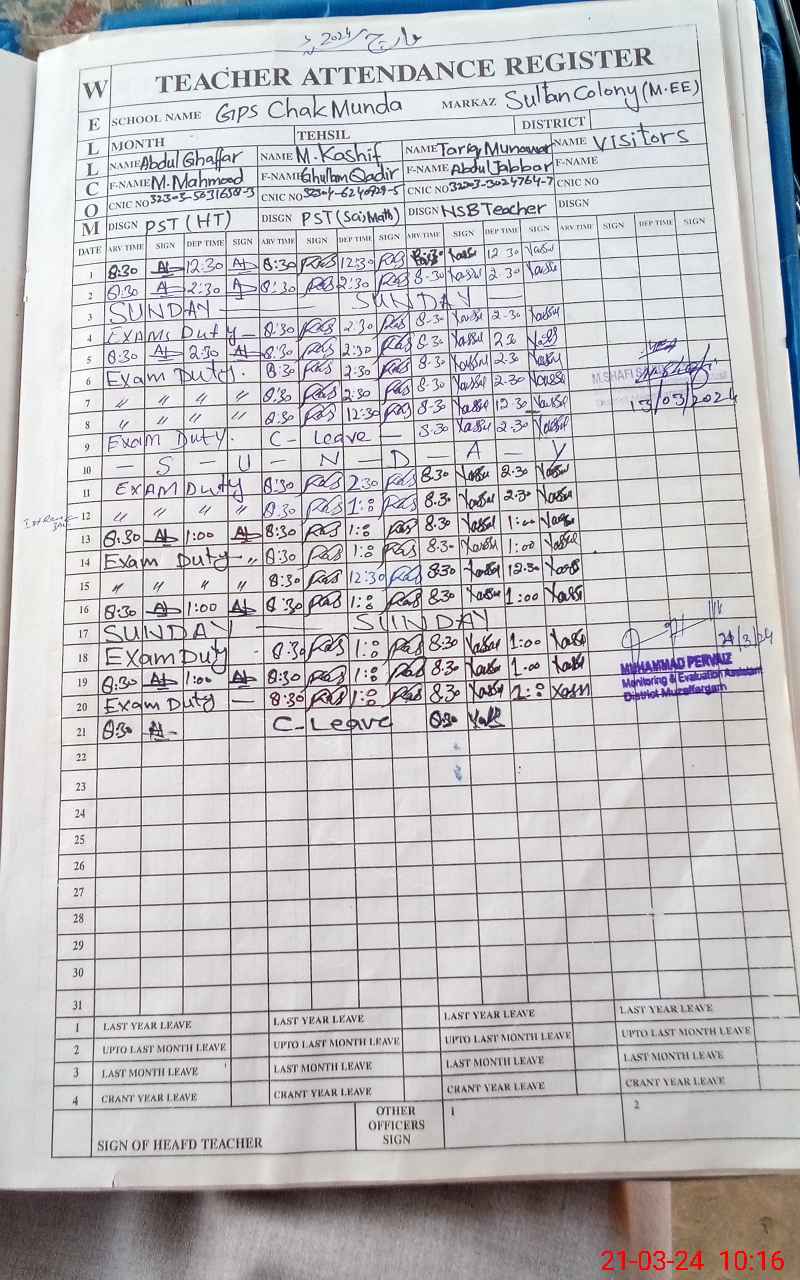 مارچ 2024ء
W TEACHER ATTENDANCE REGISTER
E SCHOOL NAME GPS Chak Munda MARKAZ Sultan Colony (M.EE)
L MONTH TEHSIL DISTRICT
L NAME Abdul Ghaffar NAME M. Kashif NAME Tariq Munawar NAME Visitors
C F-NAME M. Mahmood F-NAME Ghulam Qadir F-NAME Abdul Jabbar F-NAME
O CNIC NO CNIC NO CNIC NO 32303-3024764-7 CNIC NO
M DISGN PST (HT) DISGN PST (Sci, Math) DISGN NSB Teacher DISGN
DATE ARV TIME SIGN DEP TIME SIGN ARV TIME SIGN DEP TIME SIGN ARV TIME SIGN DEP TIME SIGN ARV TIME SIGN DEP TIME SIGN
1 8:30 12:30 8:30 12:30 8:30 12 30
2 8:30 2:30 8:30 2:30 8-30 2 30
3 SUNDAY — SUNDAY —
4 EXAMS Duty — 8:30 2:30 8-30 2-30
5 8:30 2:30 8:30 2:30 8.30 2.30
6 Exam Duty. 8:30 2:30 8-30 2-30
7 〃 〃 〃 〃 8:30 2:30 8-30 2-30
8 〃 〃 〃 〃 8:30 12:30 8-30 12-30
13/03/2024
9 Exam Duty. C- Leave — 8:30 2-30
10 — S — U — N — D — A — Y
11 EXAM Duty 8:30 2:30 8.30 2.30
12 〃 〃 〃 〃 8:30 1:00 8.30 2.30
13 8:30 1:00 8:30 1:00 8.30 1:00
14 Exam Duty — 〃 8:30 1:00 8.30 1:00
15 〃 〃 〃 〃 8:30 12:30 8:30 12.30
16 8:30 1:00 8:30 1:00 8.30 1:00
17 SUNDAY — SUNDAY
18 Exam Duty - 8:30 1:00 8:30 1:00
19 8:30 1:00 8:30 1:00 8:30 1.00
20 Exam Duty — 8:30 1:00 8:30 1:00
MUHAMMAD PERVAIZ
Monitoring & Evaluation Assistant
District Muzaffargarh
21 8:30 C-Leave 8:30
22
23
24
25
26
27
28
29
30
31
1 LAST YEAR LEAVE LAST YEAR LEAVE LAST YEAR LEAVE LAST YEAR LEAVE
2 UPTO LAST MONTH LEAVE UPTO LAST MONTH LEAVE UPTO LAST MONTH LEAVE UPTO LAST MONTH LEAVE
3 LAST MONTH LEAVE LAST MONTH LEAVE LAST MONTH LEAVE LAST MONTH LEAVE
4 CRANT YEAR LEAVE CRANT YEAR LEAVE CRANT YEAR LEAVE CRANT YEAR LEAVE
SIGN OF HEAFD TEACHER OTHER OFFICERS SIGN 1 2
21-03-24 10:16